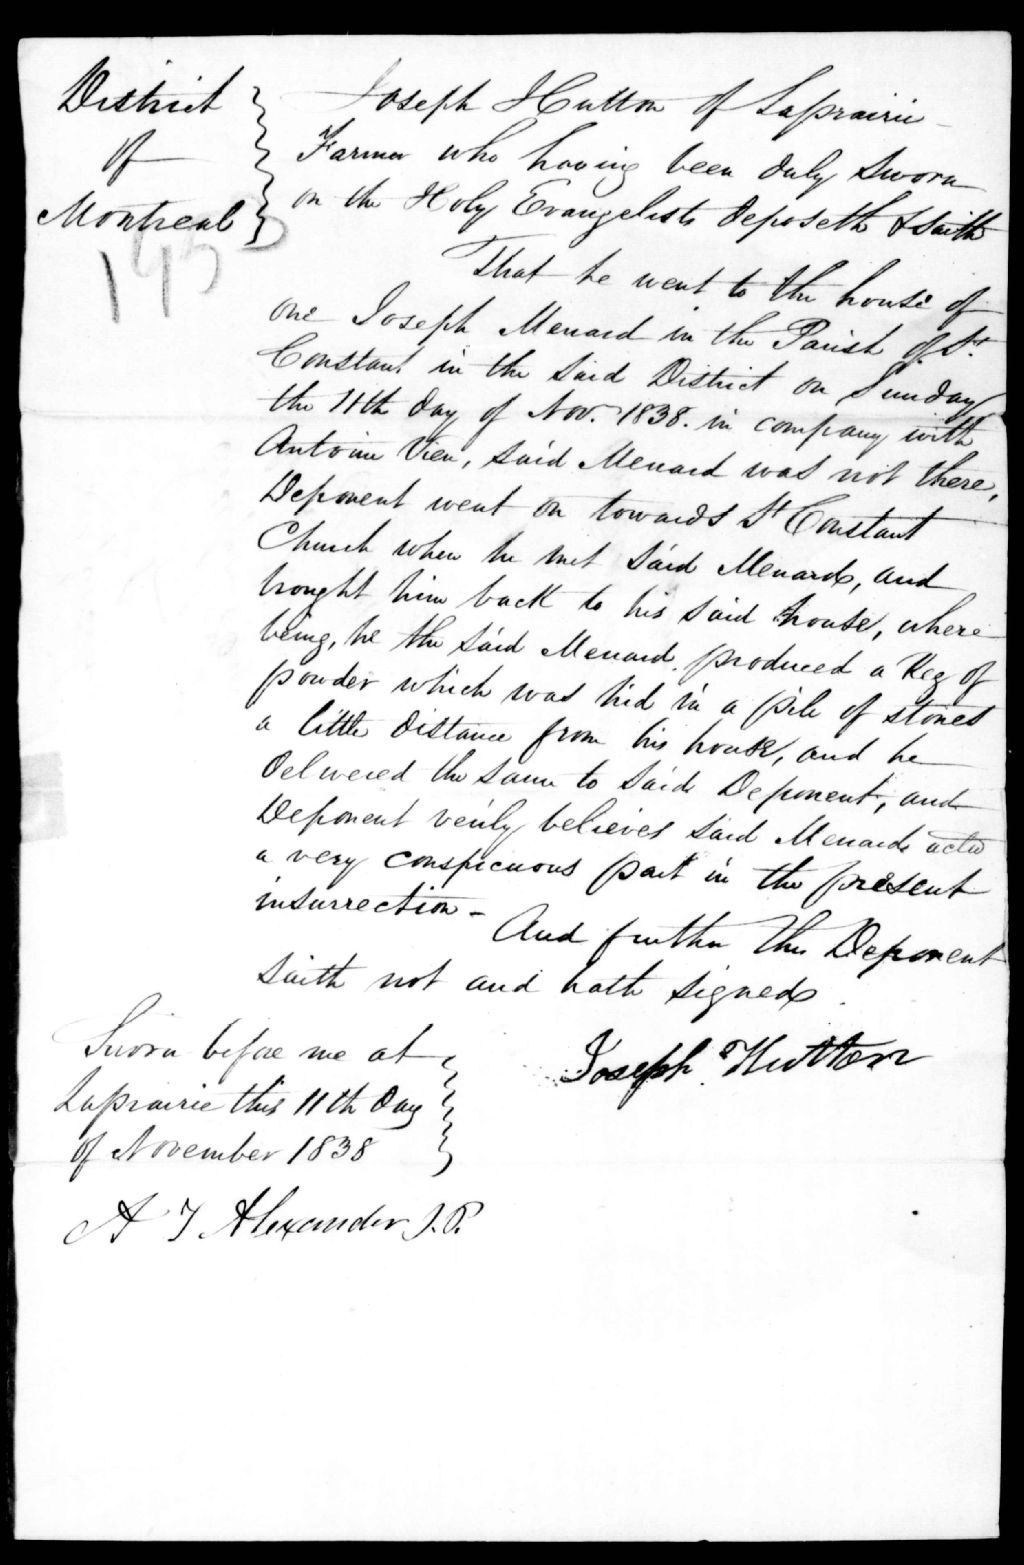 District
of
Montreal
1955
Joseph Hutton of Laprairie
Farmer who having been duly Sworn
on the Holy Evangelists deposeth & saith
That he went to the house of
one Joseph Menard in the Parish of St.
Constant in the said District on Sunday
the 11th day of Nov. 1838. in company with
Antoine Vien, said Menard was not there,
Deponent went on towards St Constant
Church when he met said Menard, and
brought him back to his said house, where
being, he the said Menard produced a Keg of
powder which was hid in a pile of stones
a little distance from his house, and he
delivered the same to said Deponent, and
Deponent verily believes said Menard acted
a very conspicuous part in the present
insurrection -
And further this Deponent
saith not and hath signed.
Joseph Hutton
Sworn before me at
Laprairie this 11th day
of November 1838
A T Alexander J.P.